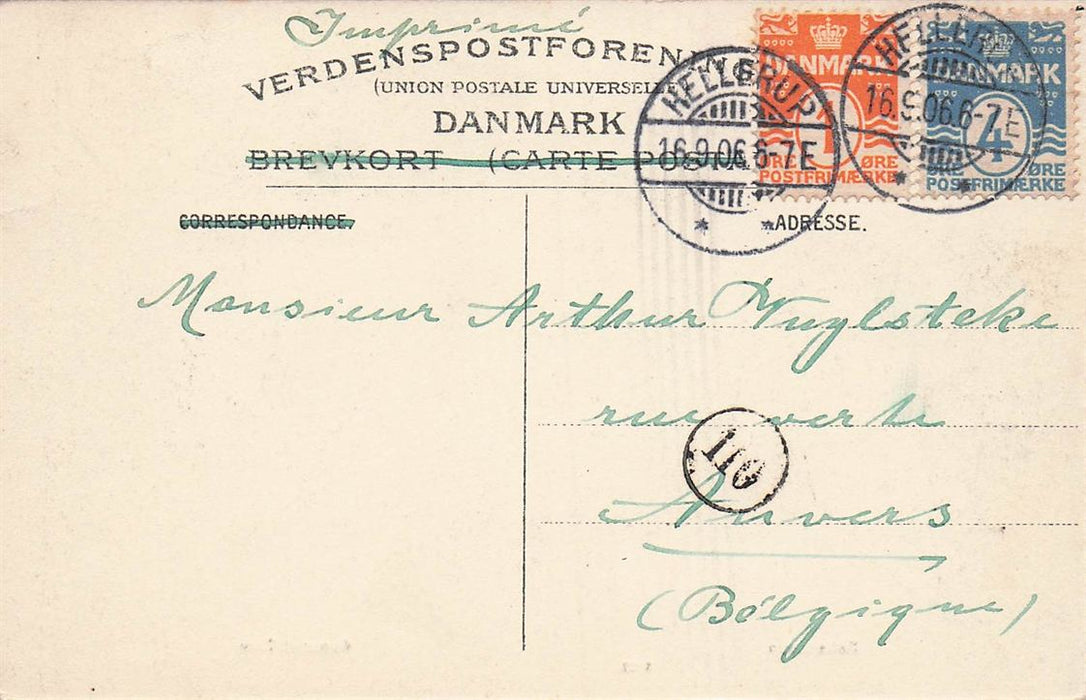 Imprimé
VERDENSPOSTFORENI
(UNION POSTALE UNIVERSELLE
DANMARK
BREVKORT (CARTE POSTA
CORRESPONDANCE.
ADRESSE.
DANMARK
1
ØRE ØRE
POSTFRIMÆRKE
DANMARK
4
ØRE ØRE
POSTFRIMÆRKE
HELLERUP
16.9.06.6-7E
HELLER
16.9.06.6-7E
Monsieur Arthur Vuylsteke
rue verte
110
Anvers
(Bélgique)